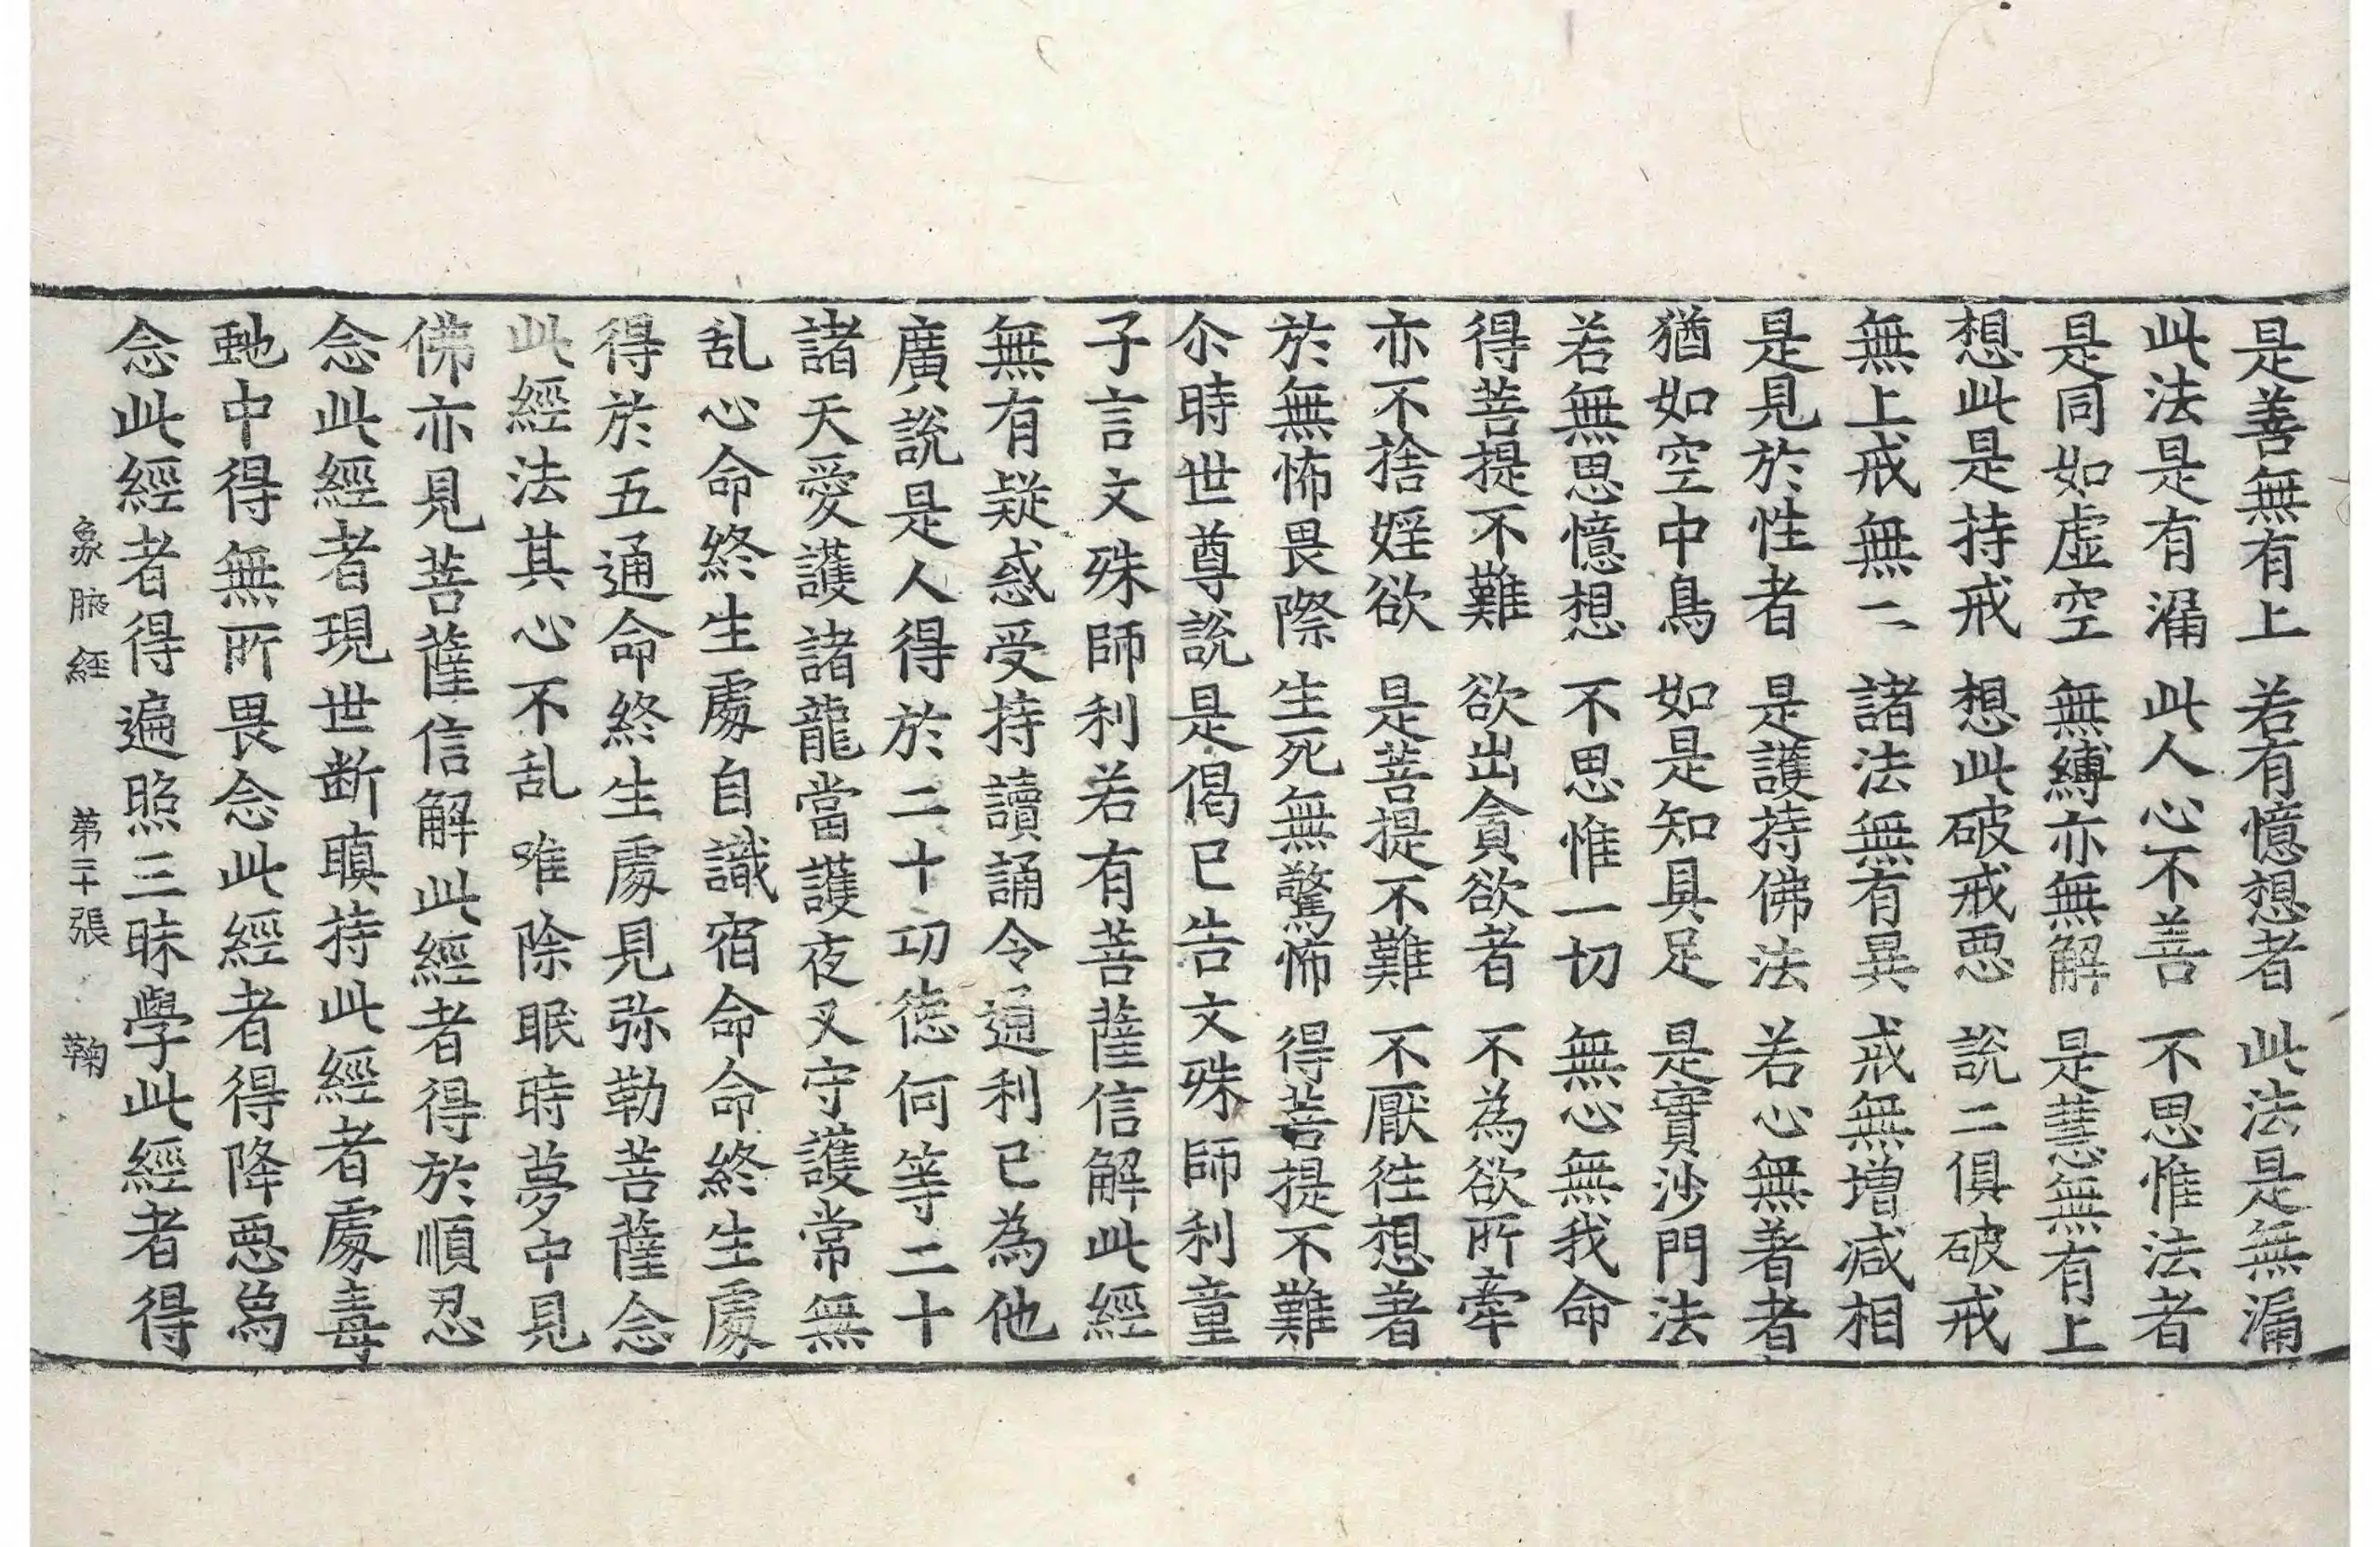 是善無有上　若有憶想者　此法是無漏
此法是有漏　此人心不善　不思惟法者
是同如虛空　無縛亦無解　是慧無有上
想此是持戒　想此破戒惡　說二俱破戒
無上戒無二　諸法無有異　戒無增减相
是見於性者　是護持佛法　若心無著者
猶如空中鳥　如是知具足　是實沙門法
若無思憶想　不思惟一切　無心無我命
得菩提不難　欲出貪欲者　不為欲所牽
亦不捨婬欲　是菩提不難　不厭往想著
於無怖畏際　生死無驚怖　得菩提不難
尒時世尊說是偈已告文殊師利童
子言文殊師利若有菩薩信解此經
無有疑惑受持讀誦令通利已為他
廣說是人得於二十功德何等二十
諸天愛護諸龍當護夜叉守護常無
乱心命終生處自識宿命命終生處
得於五通命終生處見弥勒菩薩念
此經法其心不乱唯除眠時夢中見
佛亦見菩薩信解此經者得於順忍
念此經者現世断瞋持此經者處毒
虵中得無所畏念此經者得降惡為
念此經者得遍照三昧學此經者得
象腋經　第二十張　鞠